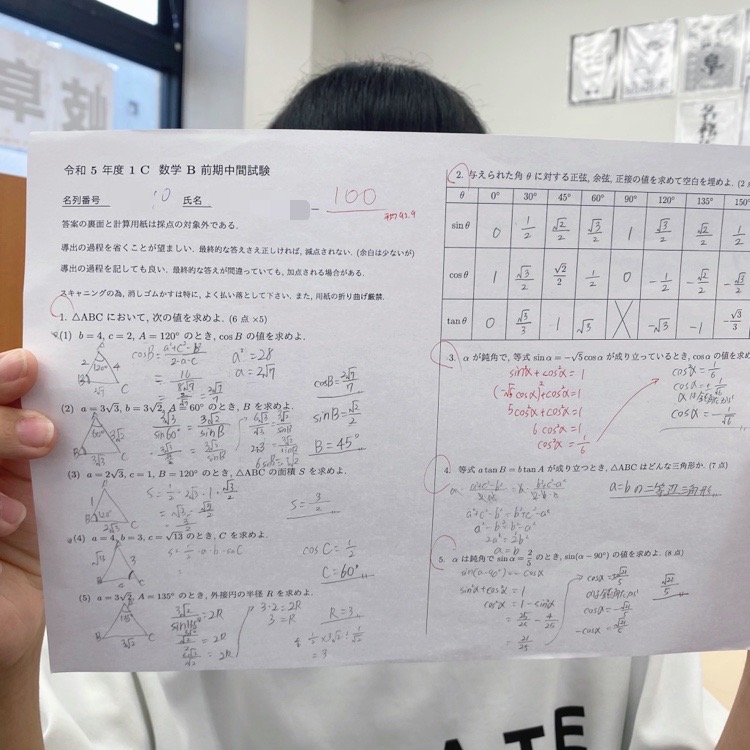 岐阜
阜
令和 5 年度 1 C 数学 B 前期中間試験
名列番号 氏名
100
平均 41.9
答案の裏面と計算用紙は採点の対象外である.
導出の過程を省くことが望ましい. 最終的な答えさえ正しければ, 減点されない. (余白は少ないが)
導出の過程を記しても良い. 最終的な答えが間違っていても, 加点される場合がある.
スキャニングの為, 消しゴムかすは特に, よく払い落として下さい. また, 用紙の折り曲げ厳禁.
1. △ABC において, 次の値を求めよ. (6 点 ×5)
(1) b = 4, c = 2, A = 120° のとき, cos B の値を求めよ.
a² = 28
a = 2√7
cosB = 2√7/7
(2) a = 3√3, b = 3√2, A = 60° のとき, B を求めよ.
3√3/sin60° = 3√2/sinB
sinB = √2/2
B = 45°
(3) a = 2√3, c = 1, B = 120° のとき, △ABC の面積 S を求めよ.
S = 1/2 · 2√3 · 1 · √3/2
S = 3/2
(4) a = 4, b = 3, c = √13 のとき, C を求めよ.
cos C = 1/2
C = 60°
(5) a = 3√2, A = 135° のとき, 外接円の半径 R を求めよ.
3·2 = 2R
3 = R
R = 3
2. 与えられた角 θ に対する正弦, 余弦, 正接の値を求めて空白を埋めよ. (2
θ 0° 30° 45° 60° 90° 120° 135° 150°
sin θ 0 1/2 √2/2 √3/2 1 √3/2 √2/2 1/2
cos θ 1 √3/2 √2/2 1/2 0 -1/2 -√2/2 -√3/2
tan θ 0 √3/3 1 √3 -√3 -1 -√3/3
3. α が鈍角で, 等式 sin α = −√5 cos α が成り立っているとき, cos α の値を求
sin²α + cos²α = 1
(-√5cosα)² + cos²α = 1
5cos²α + cos²α = 1
6cos²α = 1
cos²α = 1/6
cos²α = 1/6
cosα = ± 1/√6
αは鈍角だから
cosα = -1/√6
4. 等式 a tan B = b tan A が成り立つとき, △ABC はどんな三角形か. (7 点)
a²+c²-b² = b²+c²-a²
a²-b² = b²-a²
2a² = 2b²
a = b
a=bの二等辺三角形
5. α は鈍角で sin α = 2/5 のとき, sin(α − 90°) の値を求めよ. (8 点)
sin(α-90°) = -cosα
sin²α + cos²α = 1
cos²α = 1 - sin²α
= 25/25 - 4/25
= 21/25
cosα = ±√21/5
αは鈍角だから
cosα = -√21/5
-cosα = √21/5
√21/5
ATE